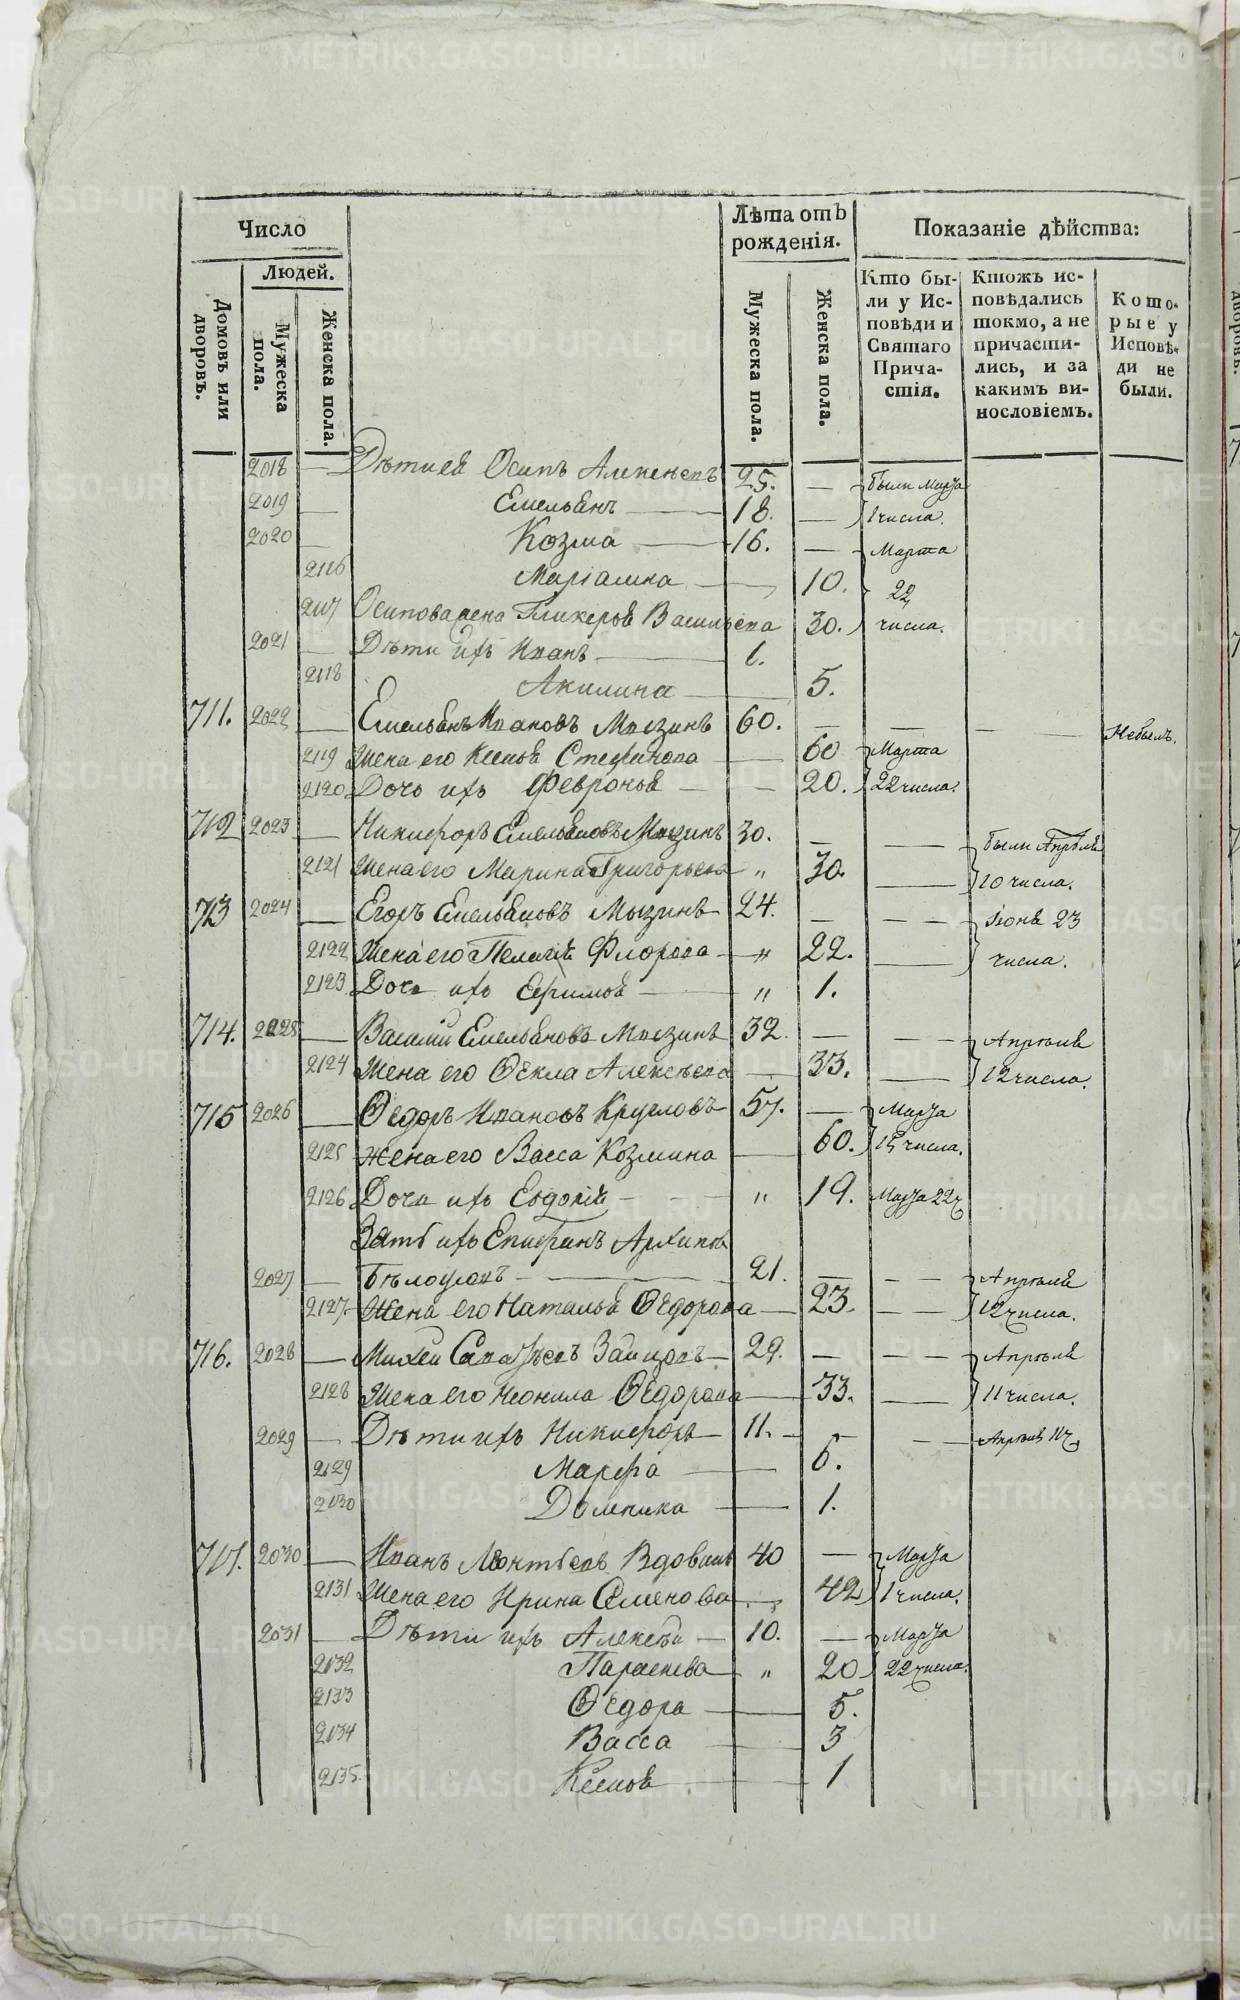 Число
Людей.
Домовъ или дворовъ.
Мужеска пола.
Женска пола.
Лѣта отъ рожденія.
Мужеска пола.
Женска пола.
Показаніе дѣйства:
Кто были у Исповѣди и Святаго Причастія.
Ктожъ исповѣдались токмо, а не причастились, и за какимъ винословіемъ.
Которые у Исповѣди не были.
2018 — Дѣти ея Осипъ Алексѣевъ 25. — были марта
2019 — Емельянъ — 18. — 1 числа.
2020 — Козма — 16. — Марта
2116 Маріамна — 10. 22
2117 Осипова жена Гликерія Васильева 30. числа.
2021 — Дѣти ихъ Иванъ — 1.
2118 Акилина — 5.
711. 2022 — Емельянъ Ивановъ Мызинъ 60. — — — — Небылъ.
2119 Жена его Ксенія Стефанова — 60 Марта
2120 Дочь ихъ Февронья — — 20. 22 числа.
712 2023 — Никифоръ Емельяновъ Мызинъ 30. — — были Апрѣля
2121 Жена его Марина Григорьева „ 30. — 10 числа.
713 2024 — Егоръ Емельяновъ Мызинъ 24. — — — Іюня 23
2122 Жена его Пелагія Флорова — „ 22. — числа.
2123 Дочь ихъ Ефимія — „ 1.
714. 2025 — Василій Емельяновъ Мызинъ 32. — — — Апрѣля
2124 Жена его Ѳекла Алексѣева — 33. — 12 числа.
715 2026 — Ѳедоръ Ивановъ Кругловъ 57. — Марта
2125 Жена его Васса Козмина — 60. 15 числа.
2126 Дочь ихъ Евдокія — — — „ 19. Марта 22 ч
Зять ихъ Епифанъ Архиповъ
2027 — Бѣлоусовъ — 21. — — — Апрѣля
2127 Жена его Наталья Ѳедорова — 23. — — 12 числа.
716. 2028 — Михей Саватѣевъ Зайцовъ — 29. — — — Апрѣля
2128 Жена его Неонила Ѳедорова — 33. — 11 числа.
2029 — Дѣти ихъ Никифоръ — 11. — — — — Апрѣля 11 ч
2129 Марфа — 6.
2130 Домника — 1.
717. 2030 — Иванъ Леонтьевъ Вдовинъ 40 — Марта
2131 Жена его Ирина Семенова — 42 1 числа.
2031 — Дѣти ихъ Алексѣй — 10. — Марта
2132 Параскева — „ 20 22 числа.
2133 Ѳедора — 5.
2134 Васса — 3
2135. Ксенія — 1
METRIKI.GASO-URAL.RU